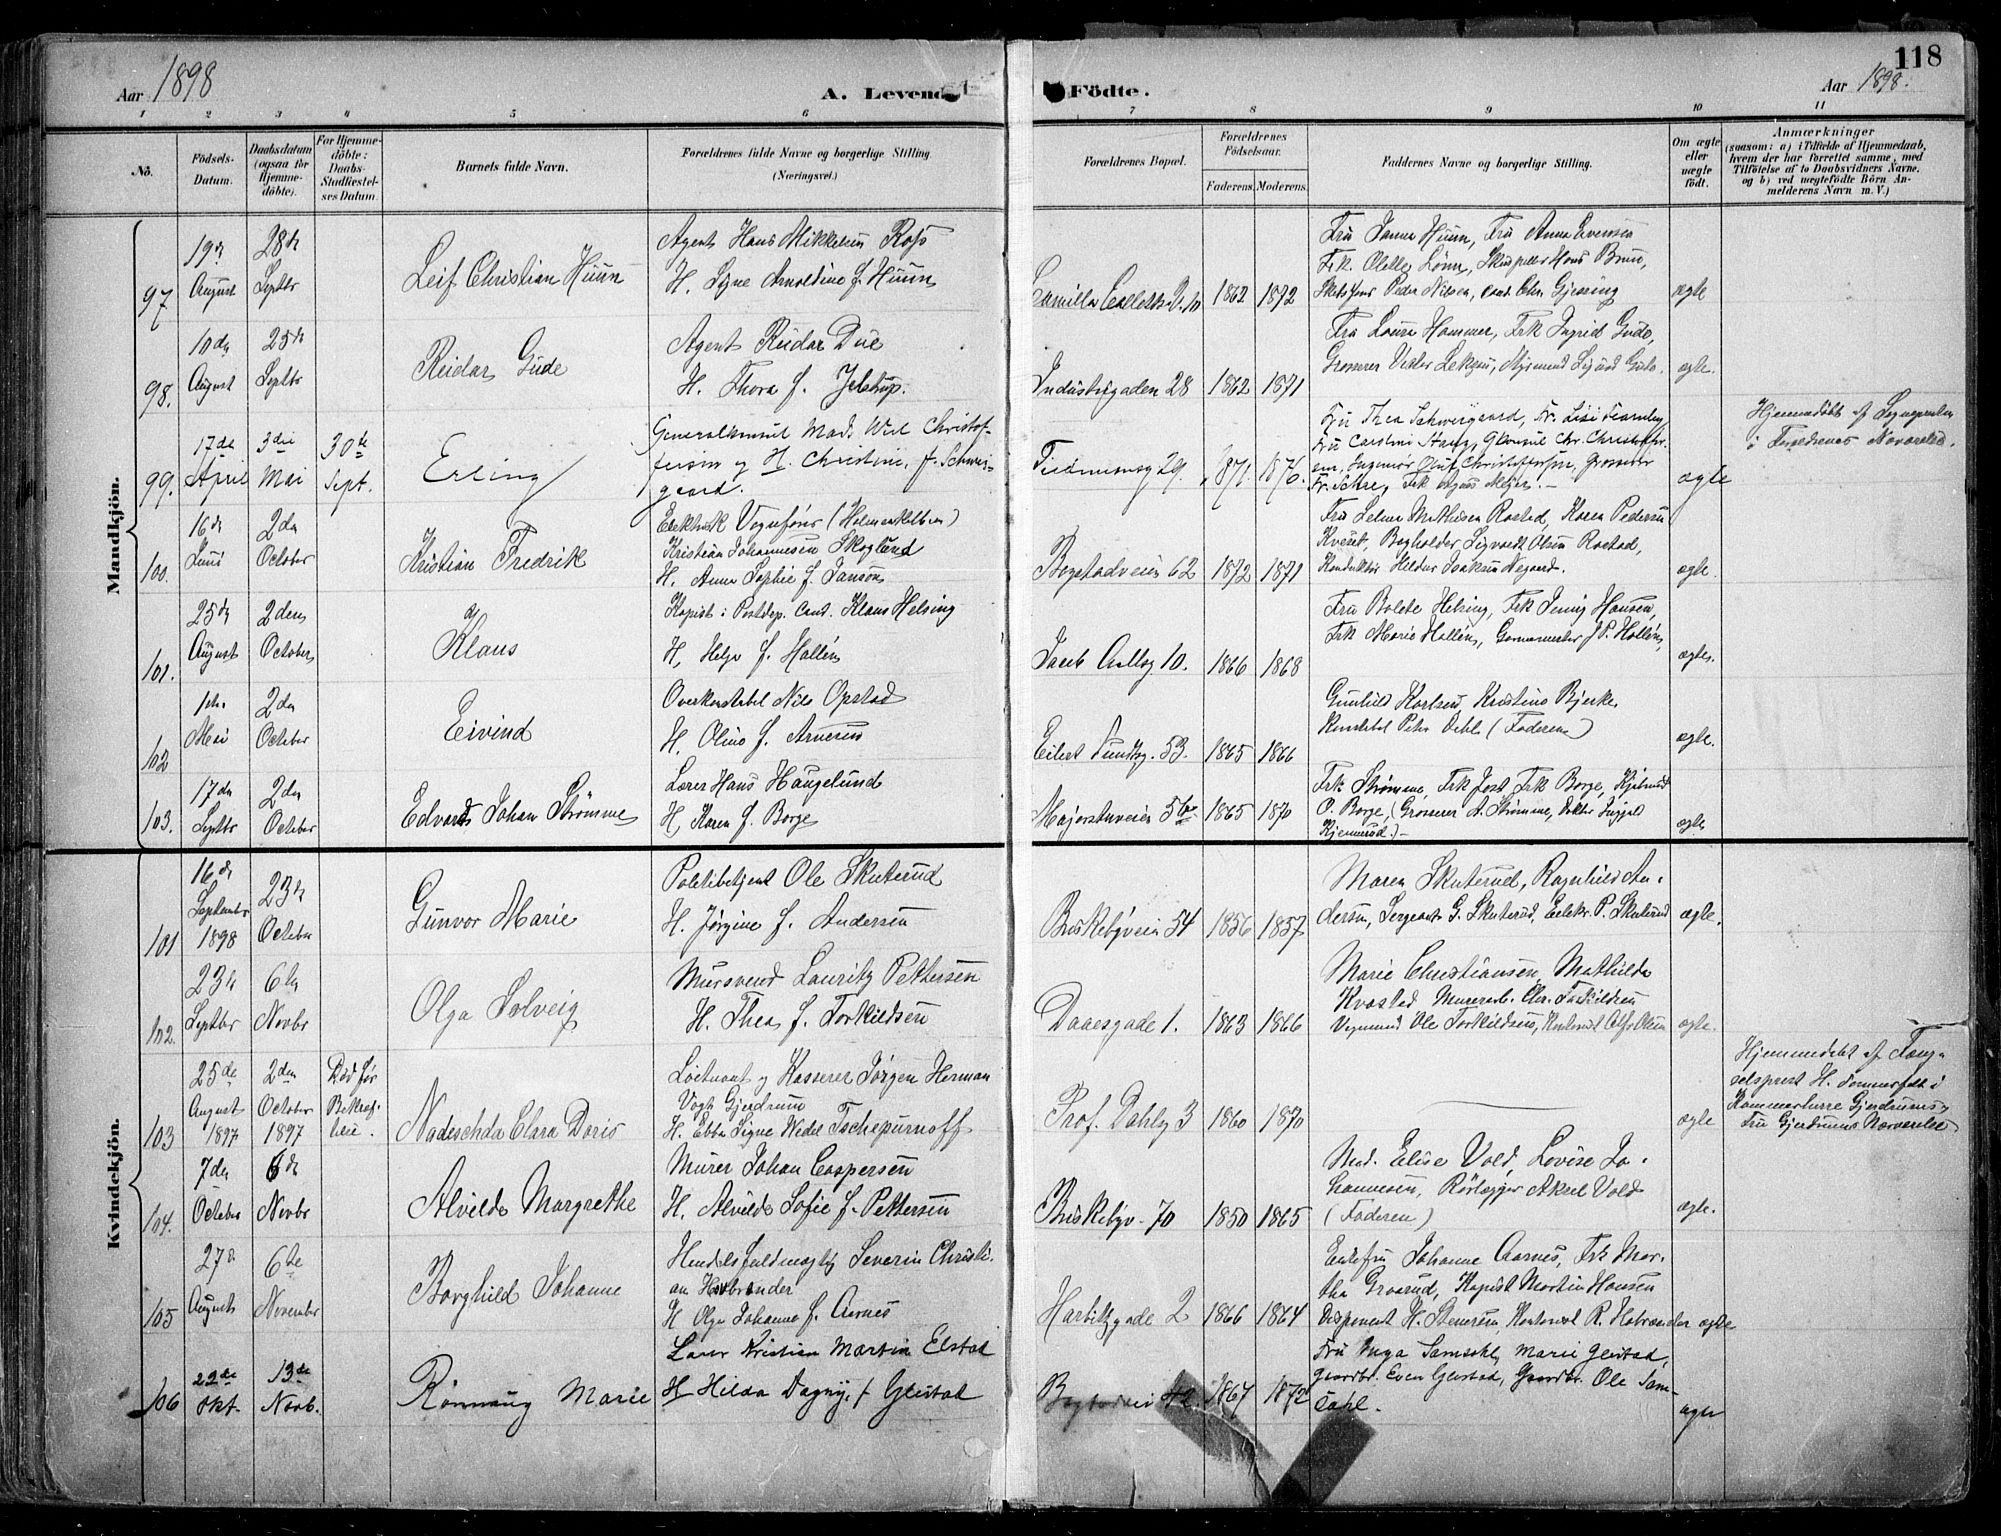 118
Aar 1898
A. Levende Födte.
Aar 1898.
1 2 3 4 5 6 7 8 9 10 11
No.
Födsels-
Datum.
Daabsdatum
(ogsaa for
Hjemme-
döbte).
For Hjemme-
döbte:
Daabs-
Stadfæstel-
ses Datum.
Barnets fulde Navn.
Forældrenes fulde Navne og borgerlige Stilling
(Næringsvei.)
Forældrenes Bopæl.
Forældrenes
Födselsaar.
Faderens. Moderens.
Faddernes Navne og borgerlige Stilling.
Om ægte
eller
uægte
födt.
Anmærkninger
(saasom: a) i Tilfælde af Hjemmedaab,
hvem der har forrettet samme, med
Tilföielse af to Daabsvidners Navne,
og b) ved uægtefödte Börn An-
melderens Navn m. V.)
Mandkjön.
97
19de
August
28de
Septbr
Leif Christian Huun
Agent Hans Mikkelsen Rofs
H. Signe Arnoldine f. Huun
Camilla Colletts V. 10
1862
1872
Fru Janna Huun, Fru Anna Evensen
Frk. Olette Lönn, Hans Brun,
Peder Nilsen, cand. Chr. Gjessing
ægte
98.
10de
August
25de
Septbr
Reidar Gude
Agent Reidar Due
H. Thora f. Jelstrup.
Industrigaden 28
1862
1871
Fru Laura Hammer, Frk Ingrid Gude,
Grosserer
ægte.
99.
17de
April
3die
Mai
30te
Sept.
Erling
Generalkonsul Mad. Wiel Christof-
fersen og H. Christine, f. Schwei-
gaard.
Tidemansg 29.
1871
1870.
Fru Thea Schweigaard, Fr. Lisi Fearnley
Fru Caroline Chr. Christoffer-
sen, Ingeniør Oluf Christoffersen, Grosserer
ægte
Hjemmedøbt af Sognepresten
i Forældrenes Nærværelse.
100.
16de
Juni
2den
October
Kristian Fredrik
Elektrisk Vognfører (Holmenkolbanen)
Kristian Johannesen Skoglund
H. Anna Sophie f. Jansen
Bogstadveien 62
1872
1871
Fru Selma Mathisen Rostad, Karen Pedersen
Kværet, Bogholder Sigvardt Olsen Rostad,
Konduktør Hildur Isaksen Negaard.
ægte.
101.
25de
August
2den
October
Klaus
Kopist i Postdep. cand. Klaus Helsing
H. Helga f. Hallén
Jacob Aallsg 10.
1866
1868
Fru Bolette Helsing, Frk Jenny Hansen,
Frk Marie Hallén, Garvermester J. P. Hallén,
ægte.
102
1ste
Mai
2den
October
Eivind
Overkonstabel Nils Opstad
H. Oline f. Arnesen
Eilert Sundtsg. 53.
1865
1866
Gunhild Karlsen, Kristine Bjerke
Konstabel Peter Dehl (Faderen)
ægte.
103.
17de
Septbr
2den
October
Edvard Johan Strømme
Lærer Hans Haugelund
H. Karen f. Borge
Majorstuveien 5b
1865
1870
Frk Strømme, Frk Jost, Frk Borge,
O. Borge, (Grosserer A. Strømme, Doktor Ingvald
Kjennerød.)-
ægte
Kvindekjön.
101
16de
September
1898
23de
October
Gunvor Marie
Politibetjent Ole Skuterud
H. Jørgine f. Andersen
Briskebyveien 54
1856
1857
Maren Skuterud, Ragnhild An-
dersen, Sergeant G. Skuterud, Elektr. P. Skuterud
ægte.
102.
23de
Septbr
6te
Novbr
Olga Solveig
Mursvend Lauritz Pettersen
H. Thea f. Torkildsen
Daaesgade 1.
1863
1866
Marie Christiansen, Mathilde
Kvasted Murerarb. Chr. Torkildsen
Ole Torkildsen, Alf Olsen
ægte.
103
25de
August
1897
2den
October
1897
Død før
Bekræf-
telse.
Nadeschda Clara Doris
Løitnant og Kasserer Jørgen Herman
Vogt Gjerdrum
H. Ebba Signe Wedel Tschepurnoff
Prof. Dahlsg 3
1860
1870
ægte
Hjemmedøbt af Fæng-
selsprest H. Tommerfelt i
Kammerherre Gjerdrums og
Fru Gjerdrums Nærværelse
104.
7de
October
6te
Novbr
Alvilde Margrethe
Murer Johan Caspersen
H. Alvilde Sofie f. Pettersen
Briskebyv. 70
1850
1865
Mad. Elise Vold, Lovise Jo-
hannesen, Rørlægger Aksel Vold
(Faderen)
ægte.
105
27de
August
6te
November
Borghild Johanne
Handelsfuldmægtig Severin Christi-
an Hobrænder
H Olga Johanne f. Aarnes
Harbitzgade 2
1866
1864
Enkefru Johanne Aarnes, Frk Mar-
tha Graarud, Kopist Martin Hansen
Disponent H. Stenersen, Kontorist R. Hobrænder
ægte
106
22de
Okt.
13de
Novb.
Rønnaug Marie
Lærer Kristian Martin Elstad
H Hilda Dagny, f Gjestad
1867
1872
Fru Inga Samdahl, Marie Gjestad,
Gaardbr. Even Gjestad, Gaardbr. Ole Sam-
dahl.
ægte